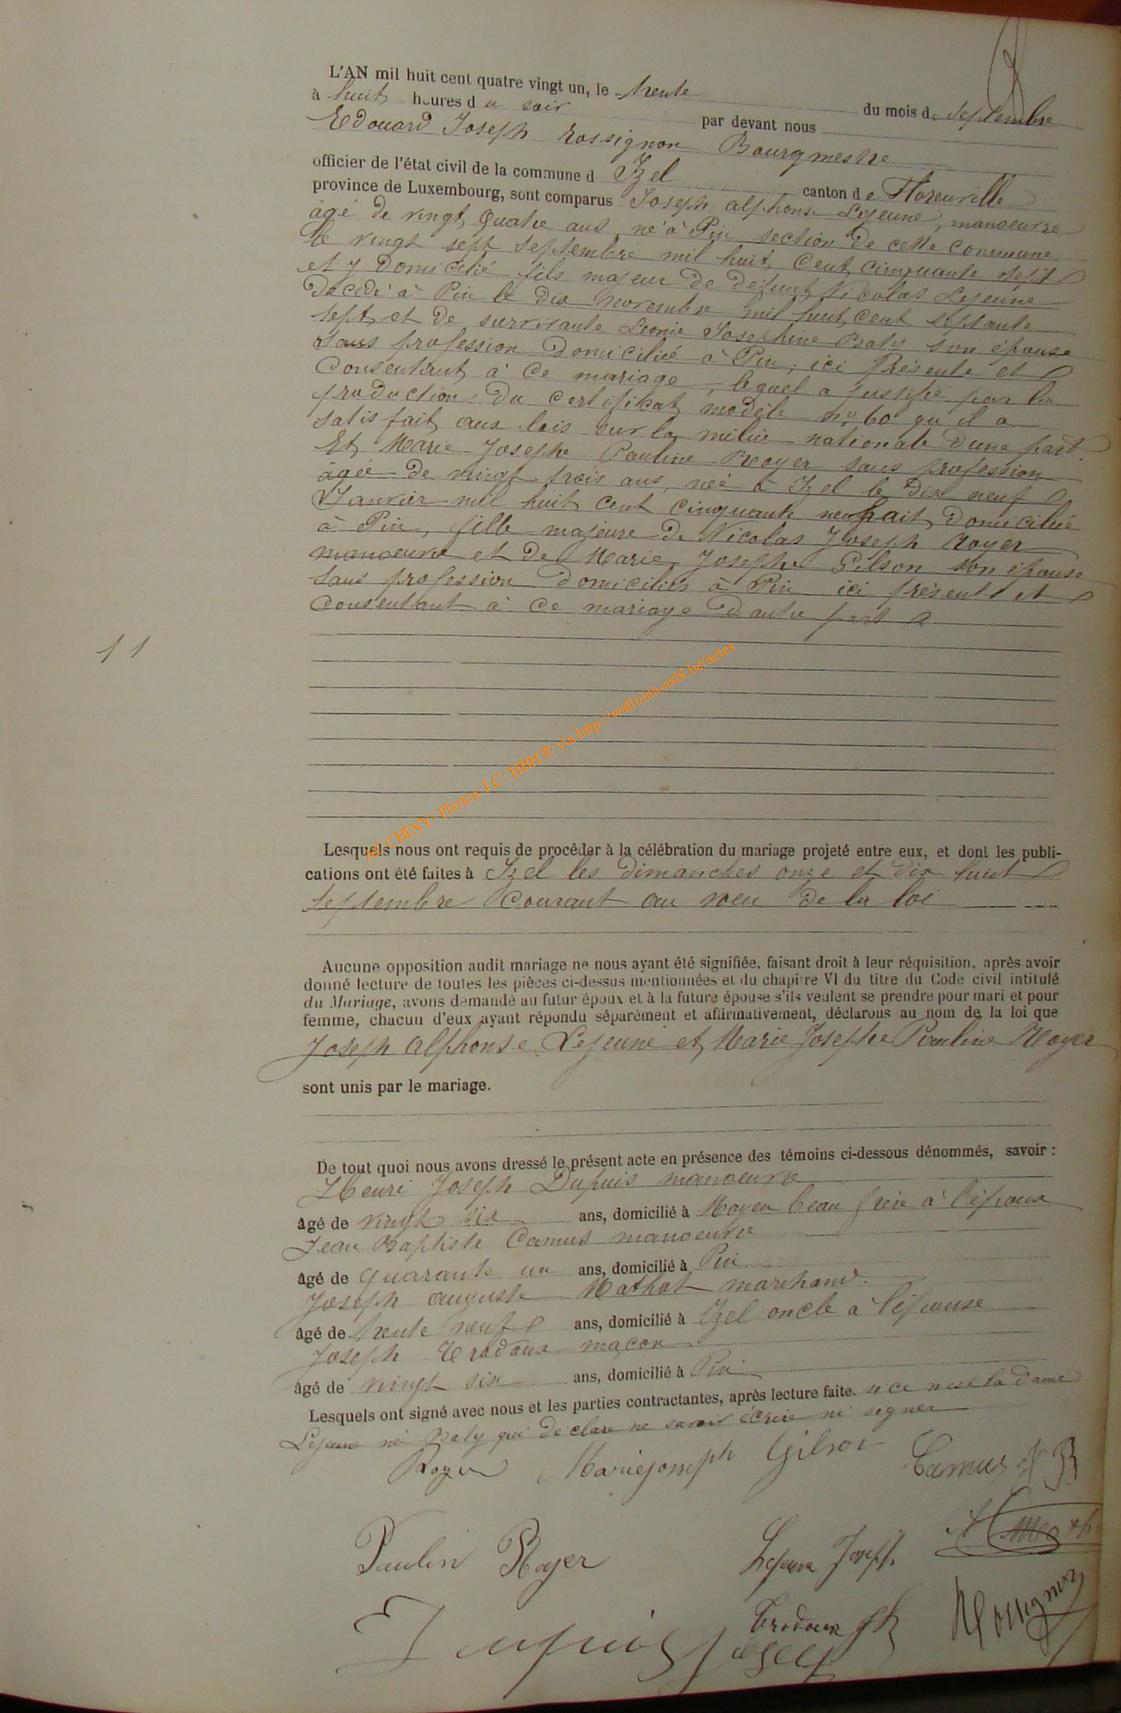 L'AN mil huit cent quatre vingt un, le trente du mois de septembre
à huit heures du soir par devant nous
Edouard Joseph Rossignon Bourgmestre
officier de l'état civil de la commune d Izel canton de Florenville
province de Luxembourg, sont comparus Joseph alphonse Lejeune, manoeuvre
âgé de vingt quatre ans, né à Pin section de cette commune
le vingt sept septembre mil huit cent cinquante sept
et y domicilié fils majeur de defunt Nicolas Lejeune
décédé à Pin le dix novembre mil huit cent septante
sept et de survivante Leonie Josephine Baty son épouse
sans profession domiciliée à Pin, ici présente et
consentant à ce mariage, lequel a justifié par la
production du certificat modèle n° 60 qu'il a
satisfait aux lois sur la milice nationale d'une part.
Et Marie Josephe Pauline Royer sans profession
âgée de vingt trois ans, née à Izel le dix neuf
Janvier mil huit cent cinquante huit domiciliée
à Pin, fille majeure de Nicolas Joseph Royer
manoeuvre et de Marie Josephe Gilson son épouse
sans profession domiciliés à Pin ici présents et
consentant à ce mariage d'autre part
11
Photos via http://wallonia-asbl.be/actes
Lesquels nous ont requis de procéder à la célébration du mariage projeté entre eux, et dont les publi-
cations ont été faites à Izel les dimanches onze et dix huit
septembre courant au voeu de la loi
Aucune opposition audit mariage ne nous ayant été signifiée, faisant droit à leur réquisition, après avoir
donné lecture de toutes les pièces ci-dessus mentionnées et du chapitre VI du titre du Code civil intitulé
du Mariage, avons demandé au futur époux et à la future épouse s'ils veulent se prendre pour mari et pour
femme, chacun d'eux ayant répondu séparément et affirmativement, déclarons au nom de la loi que
Joseph alphonse Lejeune et Marie Josephe Pauline Royer
sont unis par le mariage.
De tout quoi nous avons dressé le présent acte en présence des témoins ci-dessous dénommés, savoir :
Henri Joseph Dupuis manoeuvre
âgé de vingt six ans, domicilié à Moyen beau frère à l'épouse
Jean Baptiste Camus manoeuvre
âgé de quarante un ans, domicilié à Pin
Joseph auguste Mathot marchand.
âgé de trente neuf ans, domicilié à Izel oncle à l'épouse
Joseph Trodoux maçon
âgé de vingt six ans, domicilié à Pin
Lesquels ont signé avec nous et les parties contractantes, après lecture faite. si ce n'est la dame
Lejeune né Baty qui déclare ne savoir écrire ni signer
Royer Mariejosseph Gilson Camus J B
Paulin Royer Lejeune Joseph
Trodoux Rossignon
Dupuis Joseph